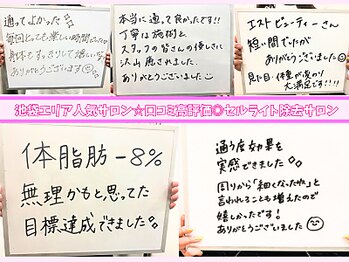 通ってよかった
毎回とっても楽しい時間でした
身体もすっきりして嬉しい
ありがとうございます
本当に通って良かったです!!
丁寧な施術と
スタッフの皆さんの優しさに
沢山癒されました
ありがとうございました
エストビューティーさん
短い間でしたが
ありがとうございました
見た目・体重が変わり
大満足です!!!
池袋エリア人気サロン☆口コミ高評価◎セルライト除去サロン
体脂肪-8%
無理かもと思ってた
目標達成できました
通う度効果を
実感できました
周りから「細くなったね」と
言われることも増えたので
嬉しかったです!
ありがとうございました